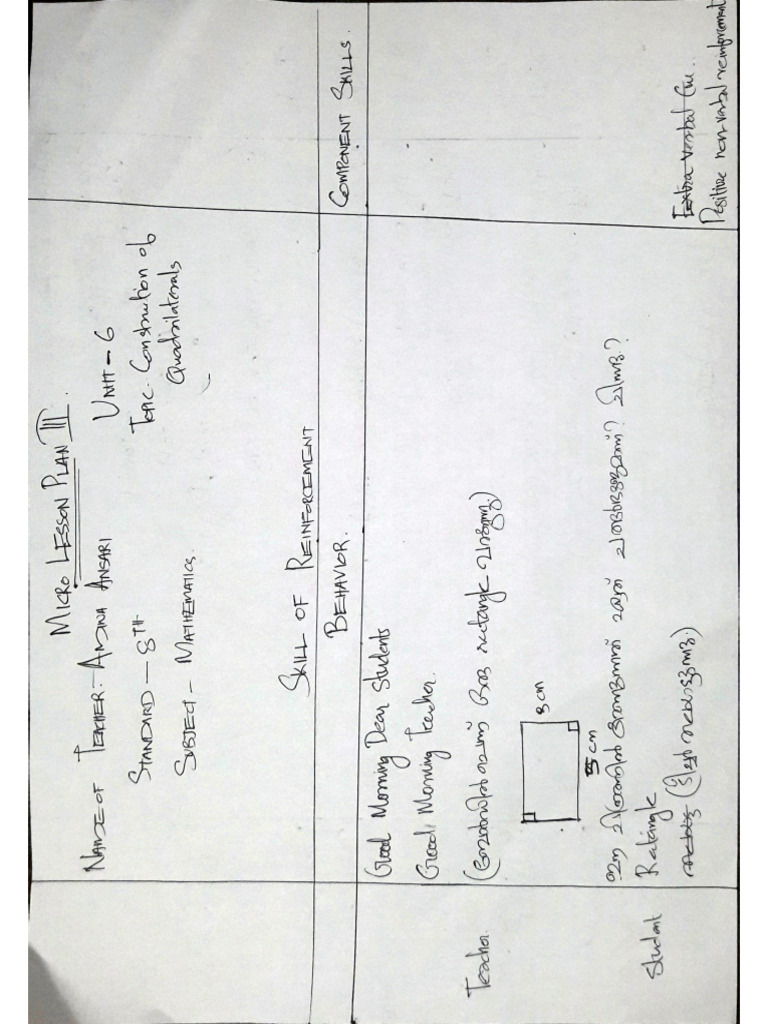 MICRO LESSON PLAN III.
NAME OF TEACHER:- AMINA ANSARI
UNIT - 6
STANDARD - 8TH
TOPIC - Construction of
Quadrilaterals
SUBJECT - MATHEMATICS
SKILL OF REINFORCEMENT
BEHAVIOR.
COMPONENT SKILLS.
Good Morning Dear Students
Good Morning Teacher.
Teacher
(ബോർഡിൽ ഒരു rectangle വരയ്ക്കുന്നു)
3 cm
5 cm
ഈ ചിത്രത്തിൽ
Student
Ratangle
Extra verbal
Positive non-verbal reinforcement